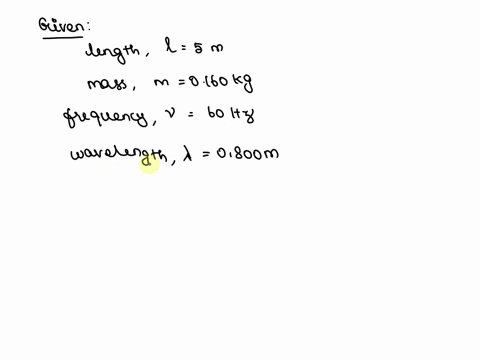 Given:
length, l = 5 m
mass, m = 0.160 kg
frequency, ν = 60 Hz
wavelength, λ = 0.800m